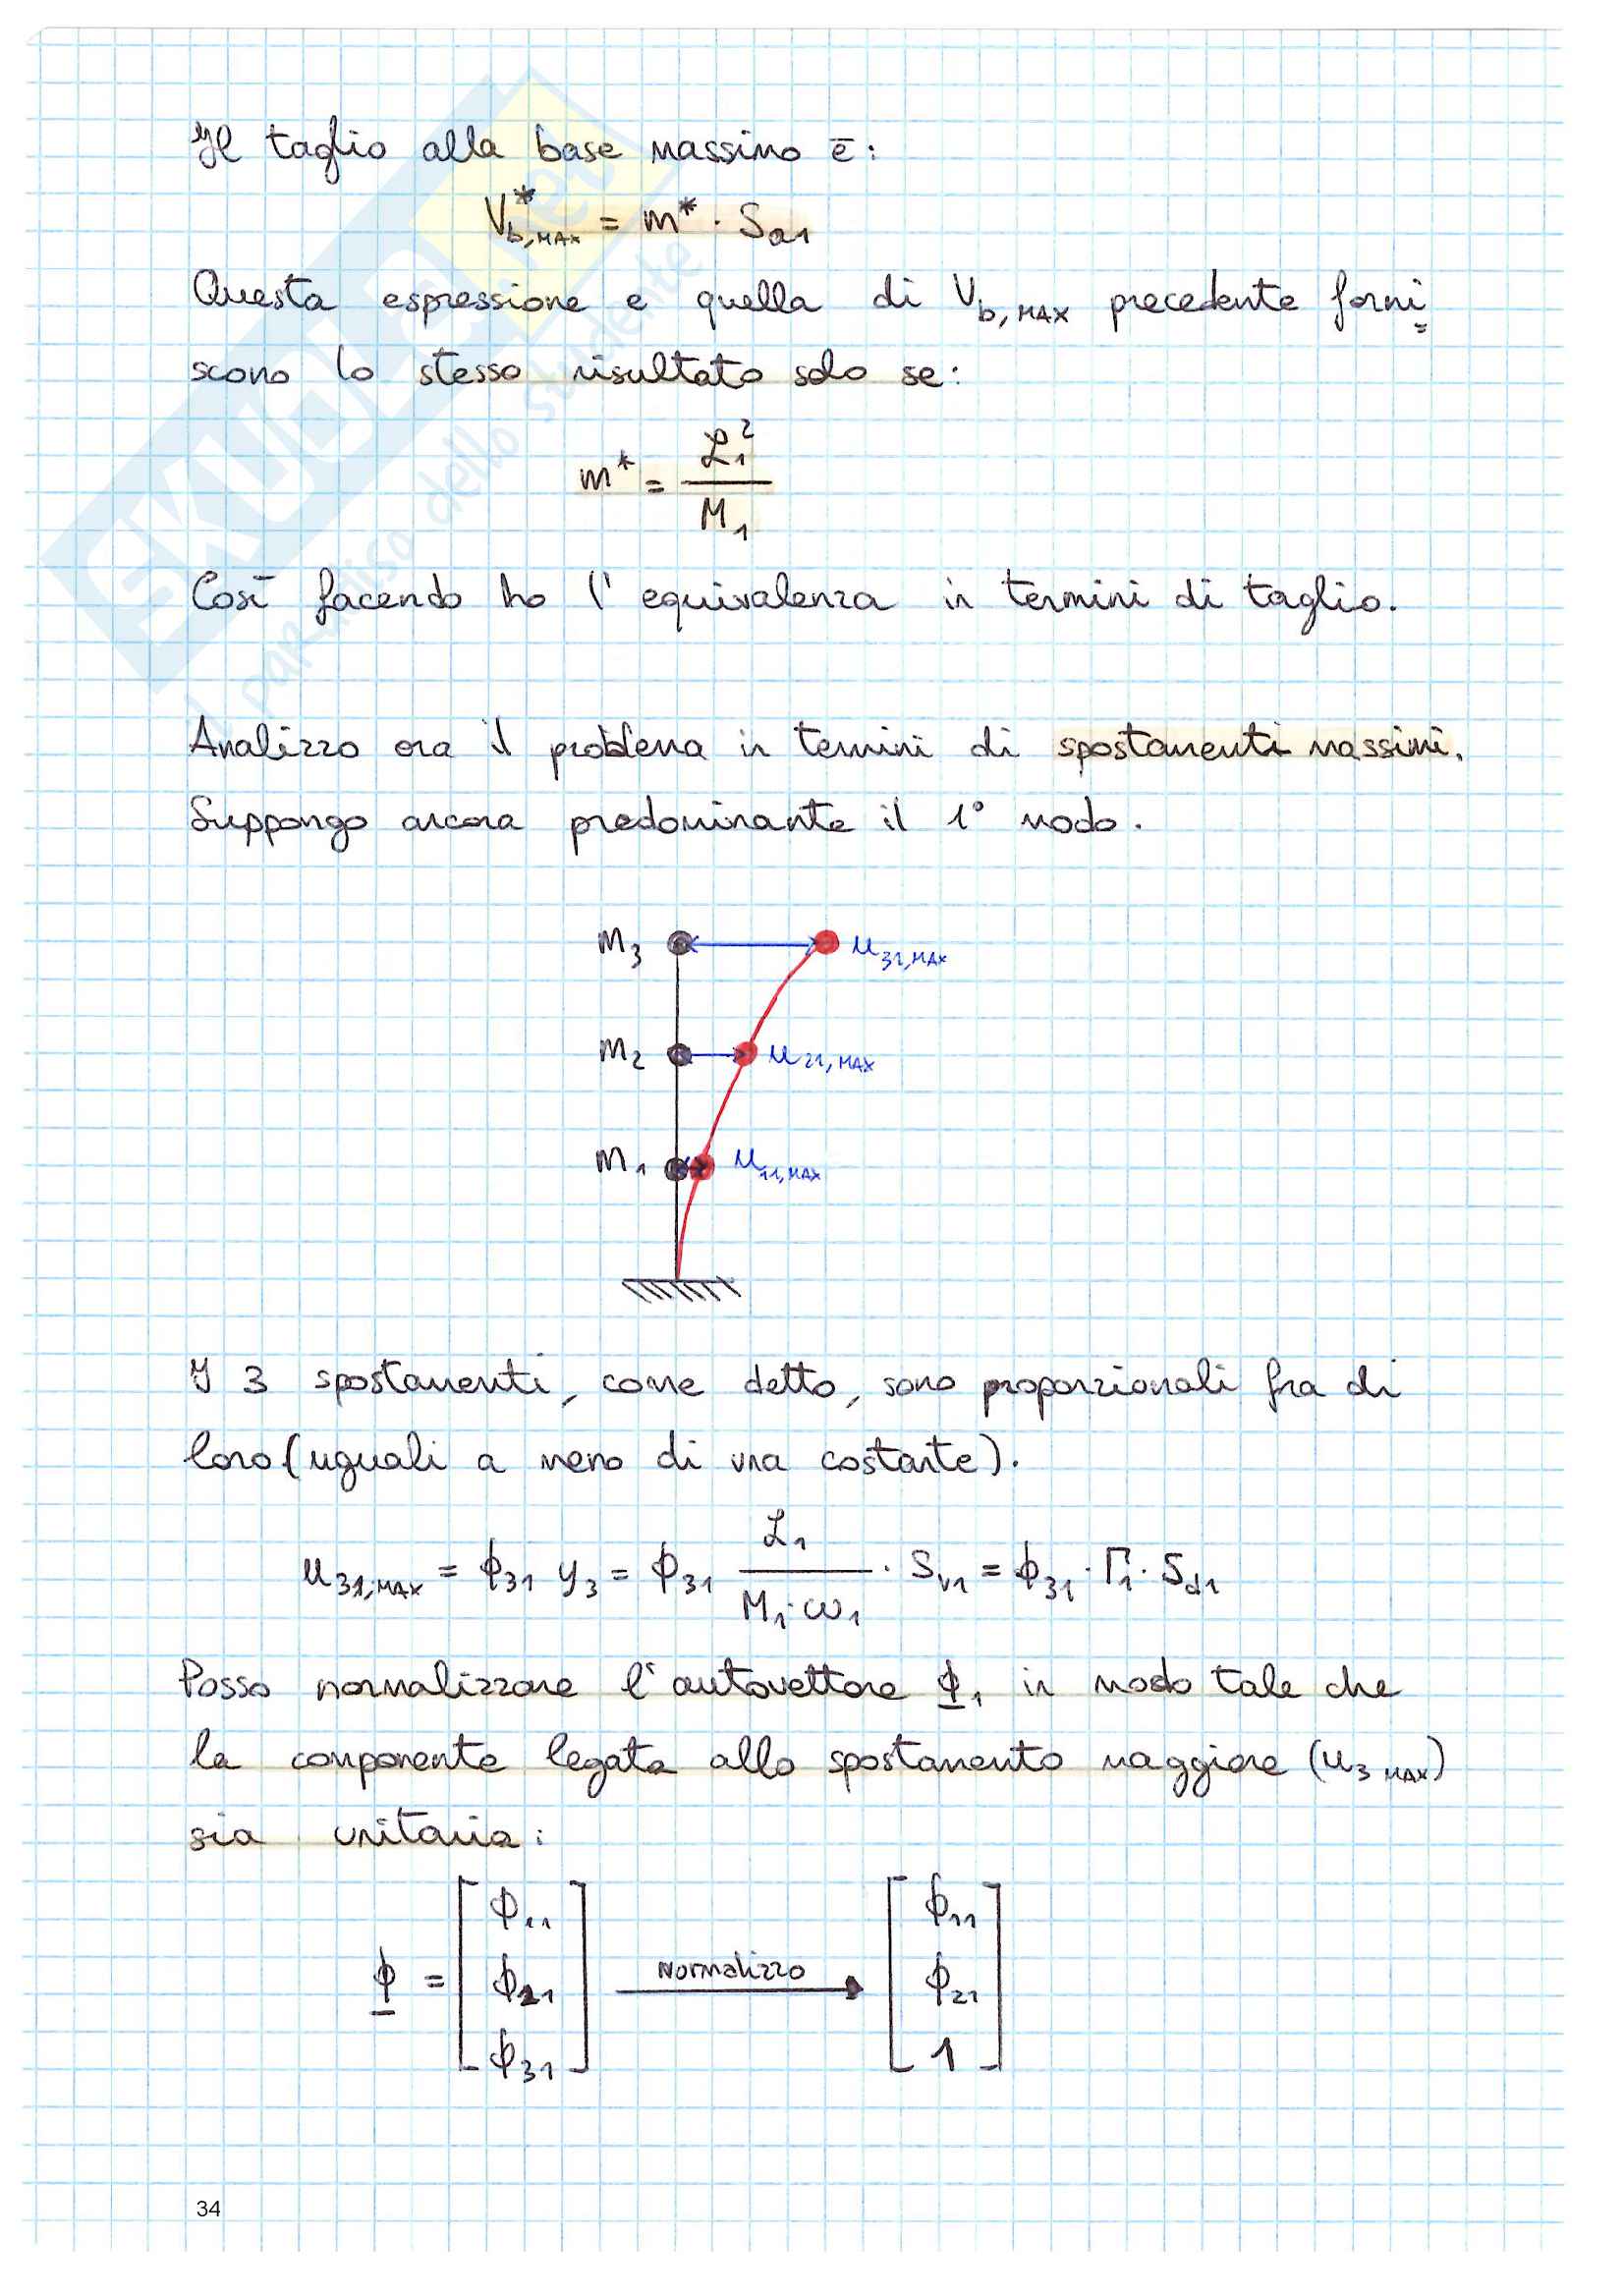 Il taglio alla base massimo è:
V*b,MAX = m* · Sa1
Questa espressione e quella di Vb,MAX precedente forni=
scono lo stesso risultato solo se:
m* = ℒ1² / M1
Così facendo ho l'equivalenza in termini di taglio.
Analizzo ora il problema in termini di spostamenti massimi.
Suppongo ancora predominante il 1° modo.
m3 u31,MAX
m2 u21,MAX
m1 u11,MAX
I 3 spostamenti, come detto, sono proporzionali fra di
loro (uguali a meno di una costante).
u31,MAX = ϕ31 y3 = ϕ31 ℒ1 / (M1·ω1) · Sv1 = ϕ31 · Γ1 · Sd1
Posso normalizzare l'autovettore ϕ1 in modo tale che
la componente legata allo spostamento maggiore (u3 MAX)
sia unitaria:
ϕ = [ϕ11 ϕ21 ϕ31] normalizzo → [ϕ11 ϕ21 1]
34
SKUOLA.net
il paradiso dello studente